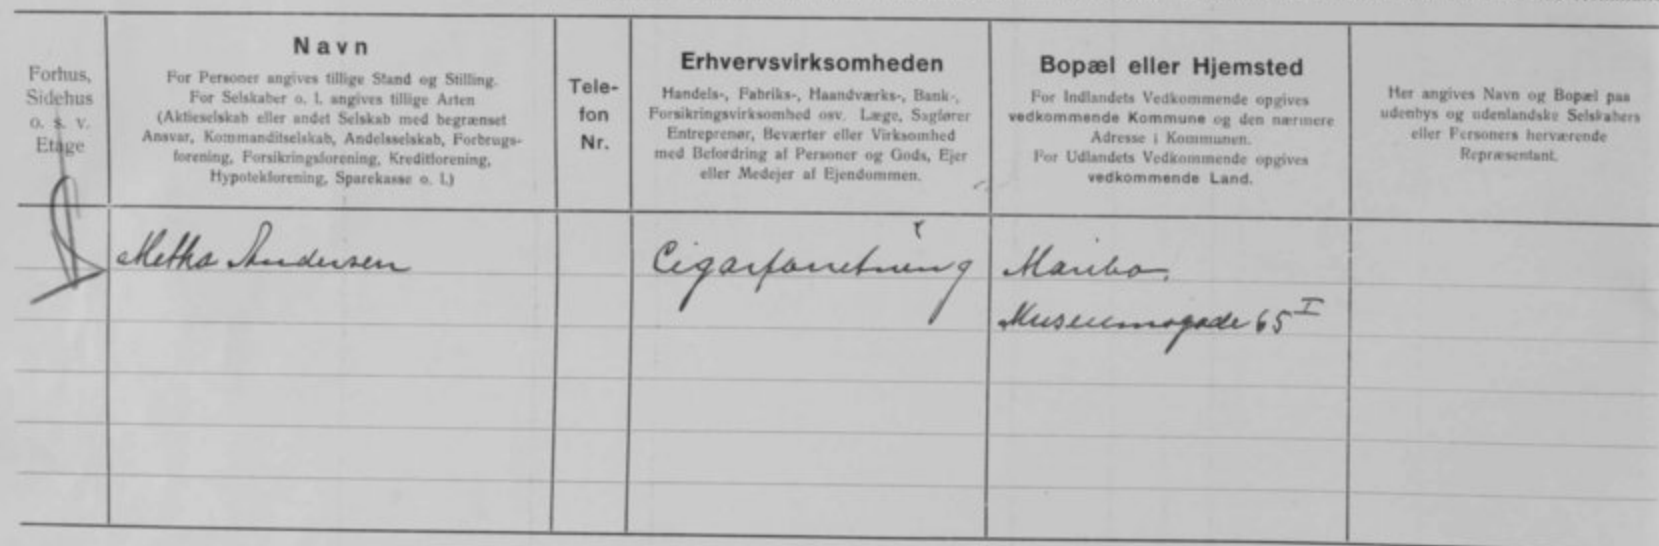 Forhus,
Sidehus
o. s. v.
Etage
Navn
For Personer angives tillige Stand og Stilling.
For Selskaber o. l. angives tillige Arten
(Aktieselskab eller andet Selskab med begrænset
Ansvar, Kommanditselskab, Andelsselskab, Forbrugs-
forening, Forsikringsforening, Kreditforening,
Hypotekforening, Sparekasse o. l.)
Tele-
fon
Nr.
Erhvervsvirksomheden
Handels-, Fabriks-, Haandværks-, Bank-,
Forsikringsvirksomhed osv. Læge, Sagfører
Entreprenør, Beværter eller Virksomhed
med Befordring af Personer og Gods, Ejer
eller Medejer af Ejendommen.
Bopæl eller Hjemsted
For Indlandets Vedkommende opgives
vedkommende Kommune og den nærmere
Adresse i Kommunen.
For Udlandets Vedkommende opgives
vedkommende Land.
Her angives Navn og Bopæl paa
udenbys og udenlandske Selskabers
eller Personers herværende
Repræsentant.
Metha Andersen
Cigarforretning
Maribo,
Museumsgade 65 I